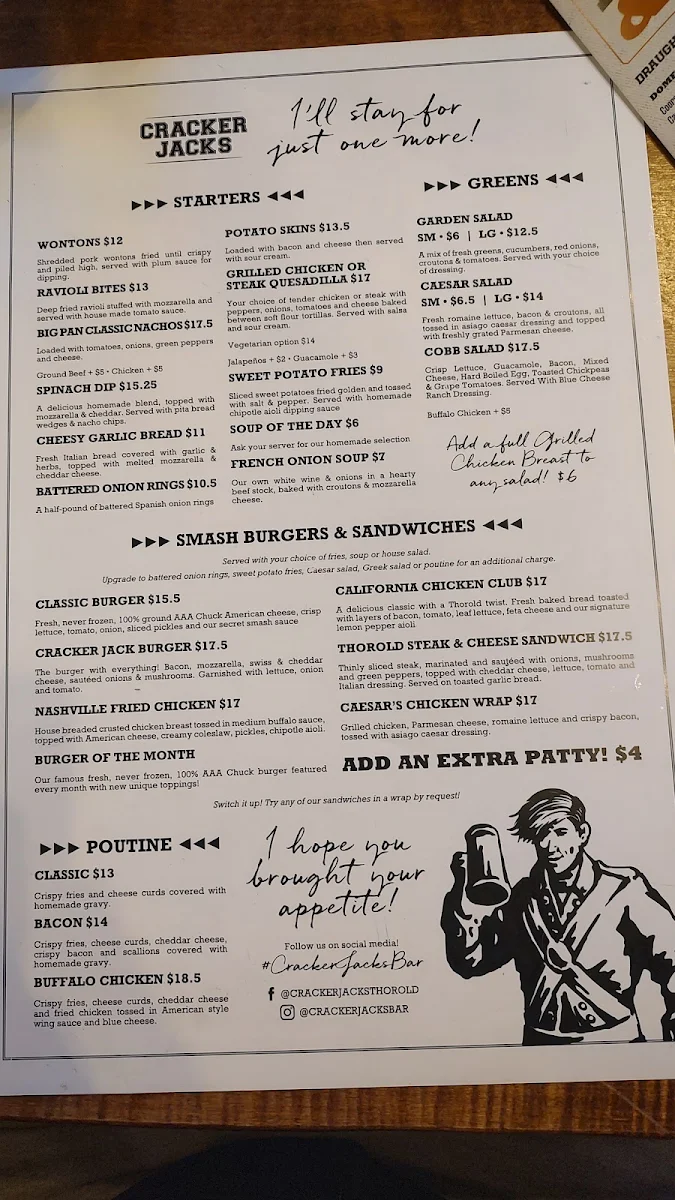 CRACKER
JACKS
I'll stay for
just one more!
STARTERS
WONTONS $12
Shredded pork wontons fried until crispy
and piled high, served with plum sauce for
dipping.
RAVIOLI BITES $13
Deep fried ravioli stuffed with mozzarella and
served with house made tomato sauce.
BIG PAN CLASSIC NACHOS $17.5
Loaded with tomatoes, onions, green peppers
and cheese.
Ground Beef + $5 • Chicken + $5
SPINACH DIP $15.25
A delicious homemade blend, topped with
mozzarella & cheddar. Served with pita bread
wedges & nacho chips.
CHEESY GARLIC BREAD $11
Fresh Italian bread covered with garlic &
herbs, topped with melted mozzarella &
cheddar cheese.
BATTERED ONION RINGS $10.5
A half-pound of battered Spanish onion rings
POTATO SKINS $13.5
Loaded with bacon and cheese then served
with sour cream.
GRILLED CHICKEN OR
STEAK QUESADILLA $17
Your choice of tender chicken or steak with
peppers, onions, tomatoes and cheese baked
between soft flour tortillas. Served with salsa
and sour cream.
Vegetarian option $14
Jalapeños + $2 • Guacamole + $3
SWEET POTATO FRIES $9
Sliced sweet potatoes fried golden and tossed
with salt & pepper. Served with homemade
chipotle aioli dipping sauce
SOUP OF THE DAY $6
Ask your server for our homemade selection
FRENCH ONION SOUP $7
Our own white wine & onions in a hearty
beef stock, baked with croutons & mozzarella
cheese.
GREENS
GARDEN SALAD
SM • $6 | LG • $12.5
A mix of fresh greens, cucumbers, red onions,
croutons & tomatoes. Served with your choice
of dressing.
CAESAR SALAD
SM • $6.5 | LG • $14
Fresh romaine lettuce, bacon & croutons, all
tossed in asiago caesar dressing and topped
with freshly grated Parmesan cheese.
COBB SALAD $17.5
Crisp Lettuce, Guacamole, Bacon, Mixed
Cheese, Hard Boiled Egg, Toasted Chickpeas
& Grape Tomatoes. Served With Blue Cheese
Ranch Dressing.
Buffalo Chicken + $5
Add a full Grilled
Chicken Breast to
any salad! $6
SMASH BURGERS & SANDWICHES
Served with your choice of fries, soup or house salad.
Upgrade to battered onion rings, sweet potato fries, Caesar salad, Greek salad or poutine for an additional charge.
CLASSIC BURGER $15.5
Fresh, never frozen, 100% ground AAA Chuck American cheese, crisp
lettuce, tomato, onion, sliced pickles and our secret smash sauce
CRACKER JACK BURGER $17.5
The burger with everything! Bacon, mozzarella, swiss & cheddar
cheese, sautéed onions & mushrooms. Garnished with lettuce, onion
and tomato.
NASHVILLE FRIED CHICKEN $17
House breaded crusted chicken breast tossed in medium buffalo sauce,
topped with American cheese, creamy coleslaw, pickles, chipotle aioli.
BURGER OF THE MONTH
Our famous fresh, never frozen, 100% AAA Chuck burger featured
every month with new unique toppings!
CALIFORNIA CHICKEN CLUB $17
A delicious classic with a Thorold twist. Fresh baked bread toasted
with layers of bacon, tomato, leaf lettuce, feta cheese and our signature
lemon pepper aioli
THOROLD STEAK & CHEESE SANDWICH $17.5
Thinly sliced steak, marinated and sautéed with onions, mushrooms
and green peppers, topped with cheddar cheese, lettuce, tomato and
Italian dressing. Served on toasted garlic bread.
CAESAR'S CHICKEN WRAP $17
Grilled chicken, Parmesan cheese, romaine lettuce and crispy bacon,
tossed with asiago caesar dressing.
ADD AN EXTRA PATTY! $4
Switch it up! Try any of our sandwiches in a wrap by request!
POUTINE
CLASSIC $13
Crispy fries and cheese curds covered with
homemade gravy.
BACON $14
Crispy fries, cheese curds, cheddar cheese,
crispy bacon and scallions covered with
homemade gravy.
BUFFALO CHICKEN $18.5
Crispy fries, cheese curds, cheddar cheese
and fried chicken tossed in American style
wing sauce and blue cheese.
I hope you
brought your
appetite!
Follow us on social media!
#CrackerJacksBar
@CRACKERJACKSTHOROLD
@CRACKERJACKSBAR